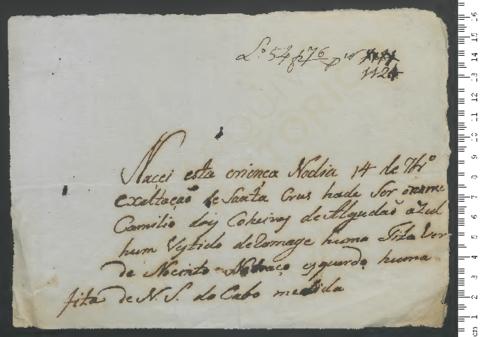 Lº 54 f 276 p
1124
Nacei esta crienca Nodia 14 de 7brº
exaltaçaõ de Santa Crus hade Ser o nome
Camilio dois Coheiros de Algudaõ azul
hum Vestido de homage huma Fita Ver
de Nocinto Nobraço esquerdo huma
fita de N. S. do Cabo medida